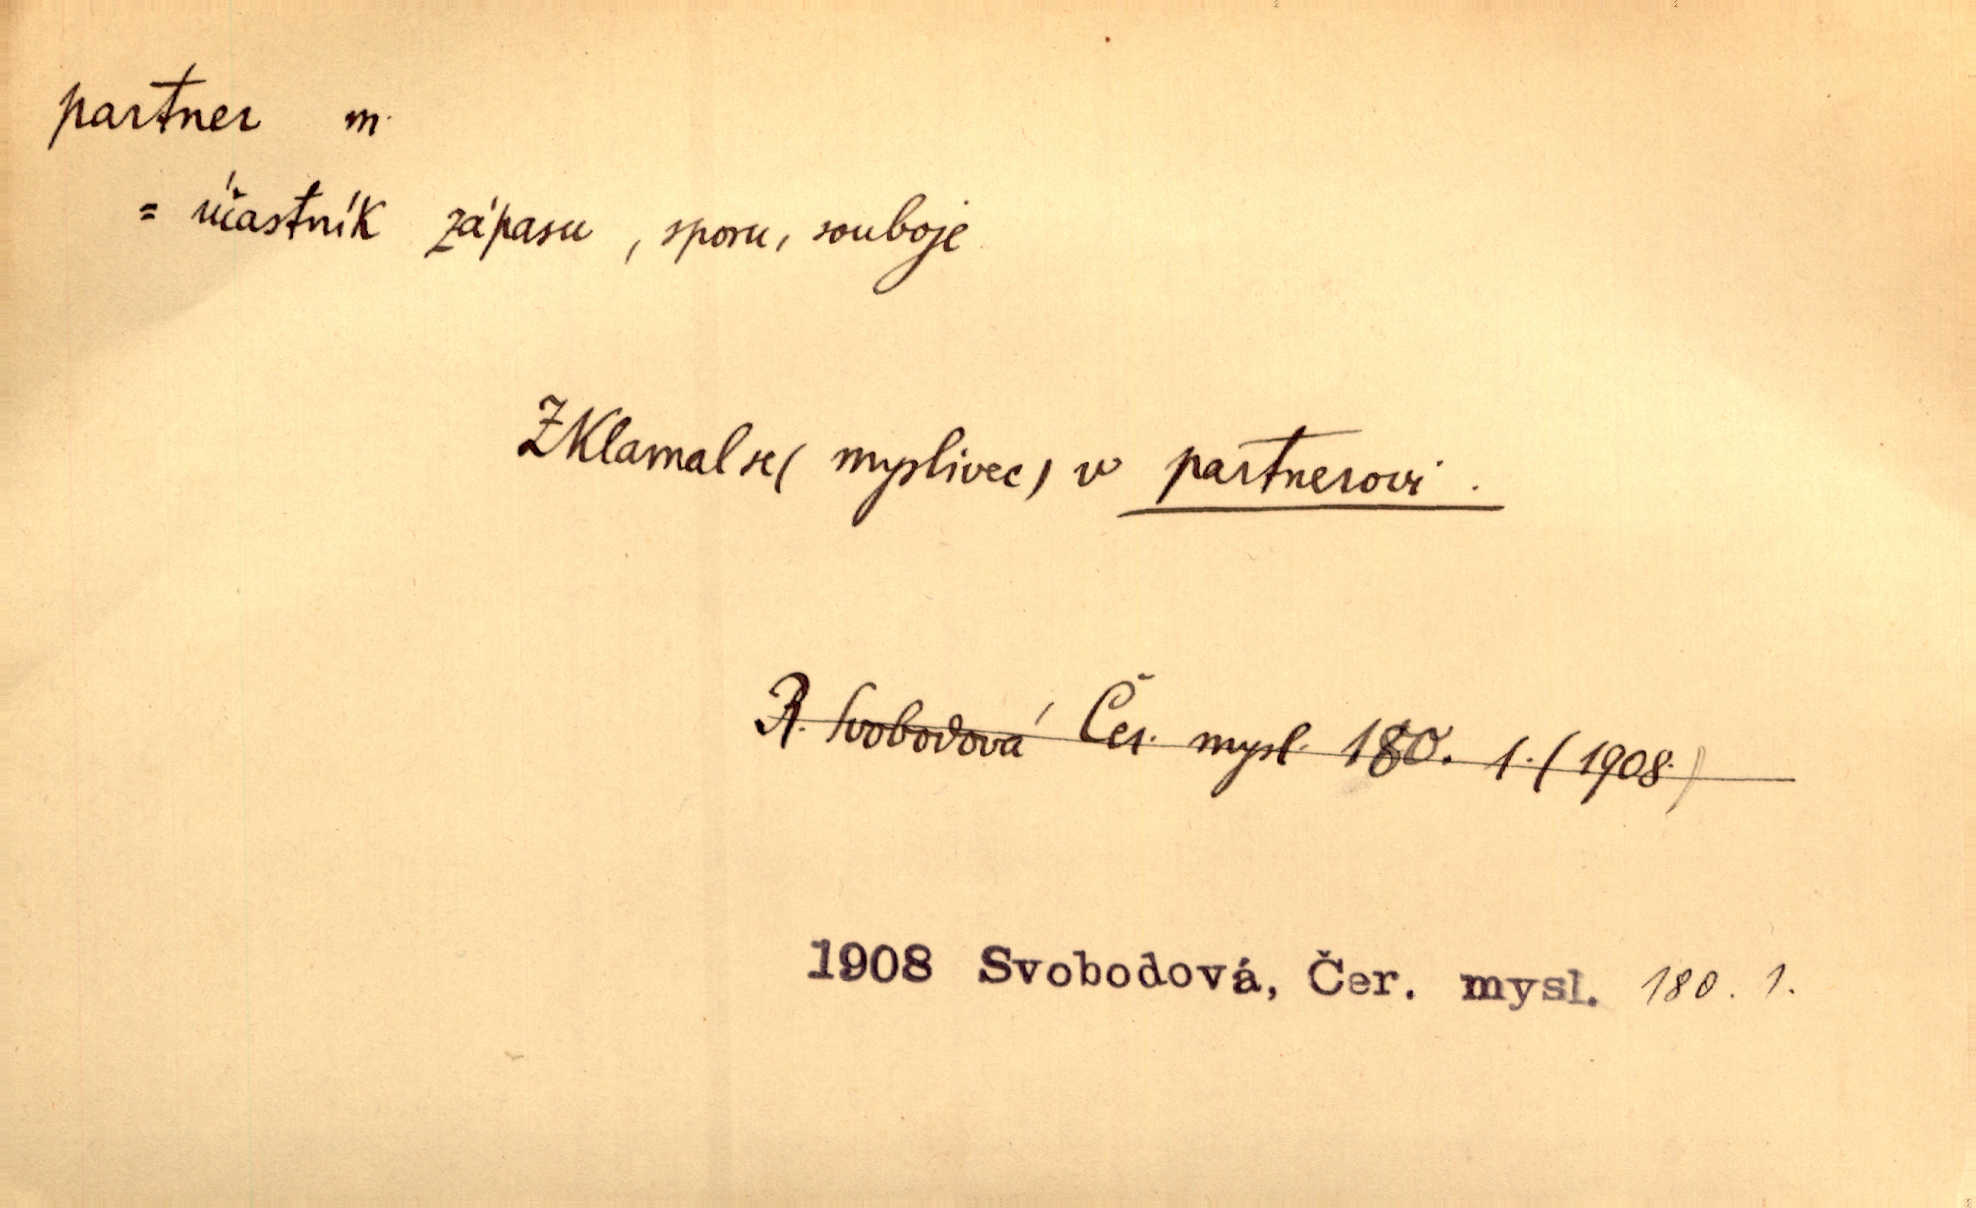 partner m.
= účastník zápasu, sporu, souboje
Zklamal se (myslivec) v partnerovi.
R. Svobodová Čer. mysl. 180. 1. (1908.)
1908 Svobodová, Čer. mysl. 180. 1.